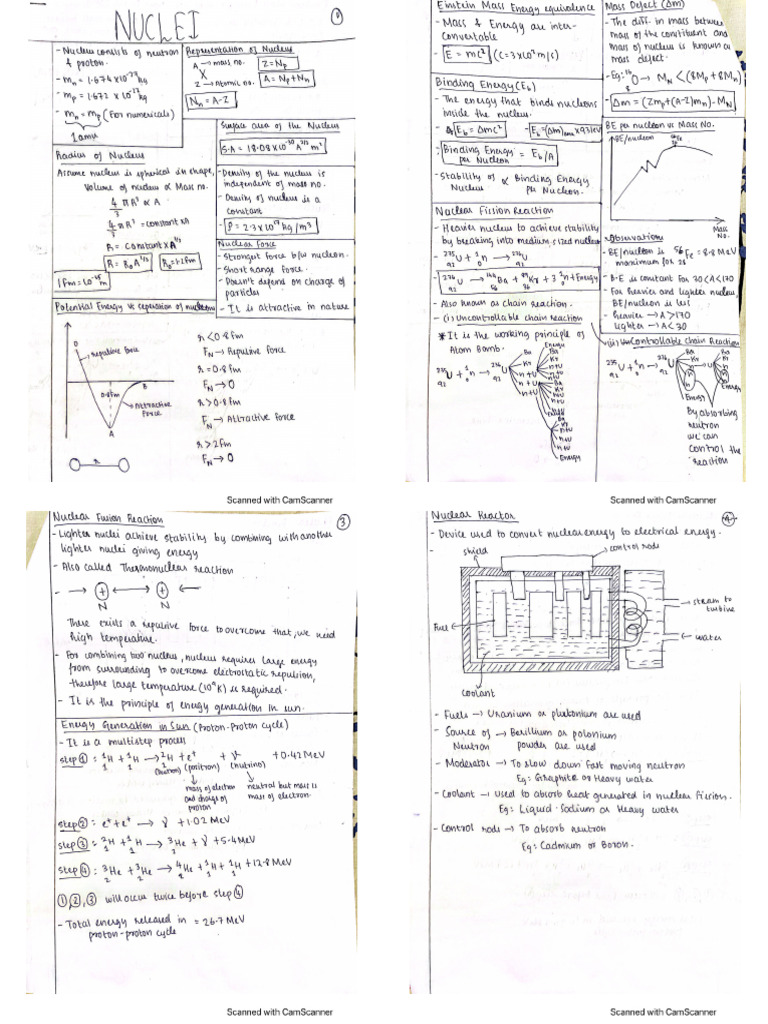 NUCLEI
①
- Nucleus consists of neutron
& proton.
- mn = 1.674×10⁻²⁷kg
- mp = 1.672 × 10⁻²⁷kg
- mn = mp (For numericals)
1amu
Representation of Nucleus
A → mass no.
X
Z → Atomic no.
Z = Np
A = Np + Nn
Nn = A-Z
Surface area of the Nucleus
Radius of Nucleus
Assume nucleus is spherical in shape,
volume of nucleus ∝ Mass no.
4/3 πR³ ∝ A
4/3 πR³ = constant × A
R = constant × A^1/3
R = R₀A^1/3
1fm = 10⁻¹⁵m
- Density of the nucleus is
independent of mass no.
- Density of nucleus is a
constant
- ρ = 2.3×10¹⁷ kg/m³
Nuclear Force
- Strongest force b/w nucleon.
- Short range force.
- Doesn't depend on charge of
particles
- It is attractive in nature
Potential Energy vs seperation of nucleons
Repulsive force
0.8fm
B
Attractive
force
A
r
r < 0.8fm
FN → Repulsive force
r = 0.8fm
FN → 0
r > 0.8fm
FN → Attractive force
r > 2fm
FN → 0
Scanned with CamScanner
Einstein Mass Energy equivalence
- Mass & Energy are inter-
convertable
- E = mc² (c = 3×10⁸ m/s)
Binding Energy (Eb)
- The energy that binds nucleons
inside the nucleus.
Eb = Δmc²
Binding Energy per Nucleon = Eb/A
- Stability of Nucleus ∝ Binding Energy per Nucleon.
Mass Defect (Δm)
- The diff. in mass between
mass of the constituent and
mass of nucleus is known as
mass defect.
- Δm = (Zmp + (A-Z)mn) - MN
BE per nucleon vs Mass No.
BE/nucleon
Mass
No.
Observation
- BE/nucleon is maximum for ⁵⁶Fe = 8.8 MeV
- B.E is constant for 30<A<170
- For heavier and lighter nucleus,
BE/nucleon is less
- heavier → A>170
lighter → A<30
Nuclear Fission Reaction
- Heavier nucleus to achieve stability
by breaking into medium sized nucleus
- Also known as chain reaction.
- (i) Uncontrollable chain reaction
* It is the working principle of
Atom Bomb.
Energy
Ba
Kr
n+U
Energy
By absorbing
neutron
we can
control the
reaction
Scanned with CamScanner
Nuclear Fusion Reaction
③
- Lighter nuclei achieve stability by combining with another
lighter nuclei giving energy
- Also called Thermonuclear reaction
+ +
N N
There exists a repulsive force to overcome that, we need
high temperature.
- For combining two nucleus, nucleus requires large energy
from surrounding to overcome electrostatic repulsion,
therefore large temperature is required.
- It is the principle of energy generation in sun.
Energy Generation in Sun (Proton-Proton cycle)
- It is a multistep process
step ①: ¹₁H + ¹₁H → ²₁H + e⁺ + ν + 0.42 MeV
(positron)
mass of electron
and charge of
proton
neutral but mass is
mass of electron.
step ②: e⁺ + e⁺ → γ + 1.02 MeV
step ③: ²₁H + ¹₁H → ³₂He + γ + 5.4 MeV
step ④: ³₂He + ³₂He → ⁴₂He + ¹₁H + ¹₁H + 12.8 MeV
①,②,③ will occur twice before step ④
- Total energy released in = 26.7 MeV
proton-proton cycle
Scanned with CamScanner
Nuclear Reactor
④
- Device used to convert nuclear energy to electrical energy.
shield
control rods
steam to
turbine
Fuel
water
coolant
- Fuels → Uranium or plutonium are used
- Source of Neutron → Berillium or polonium
powder are used
- Moderator → To slow down fast moving neutron
Eg: Graphite or Heavy water
- Coolant → used to absorb heat generated in nuclear fission.
Eg: Liquid Sodium or Heavy water
- Control rods → To absorb neutron
Eg: Cadmium or Boron.
Scanned with CamScanner